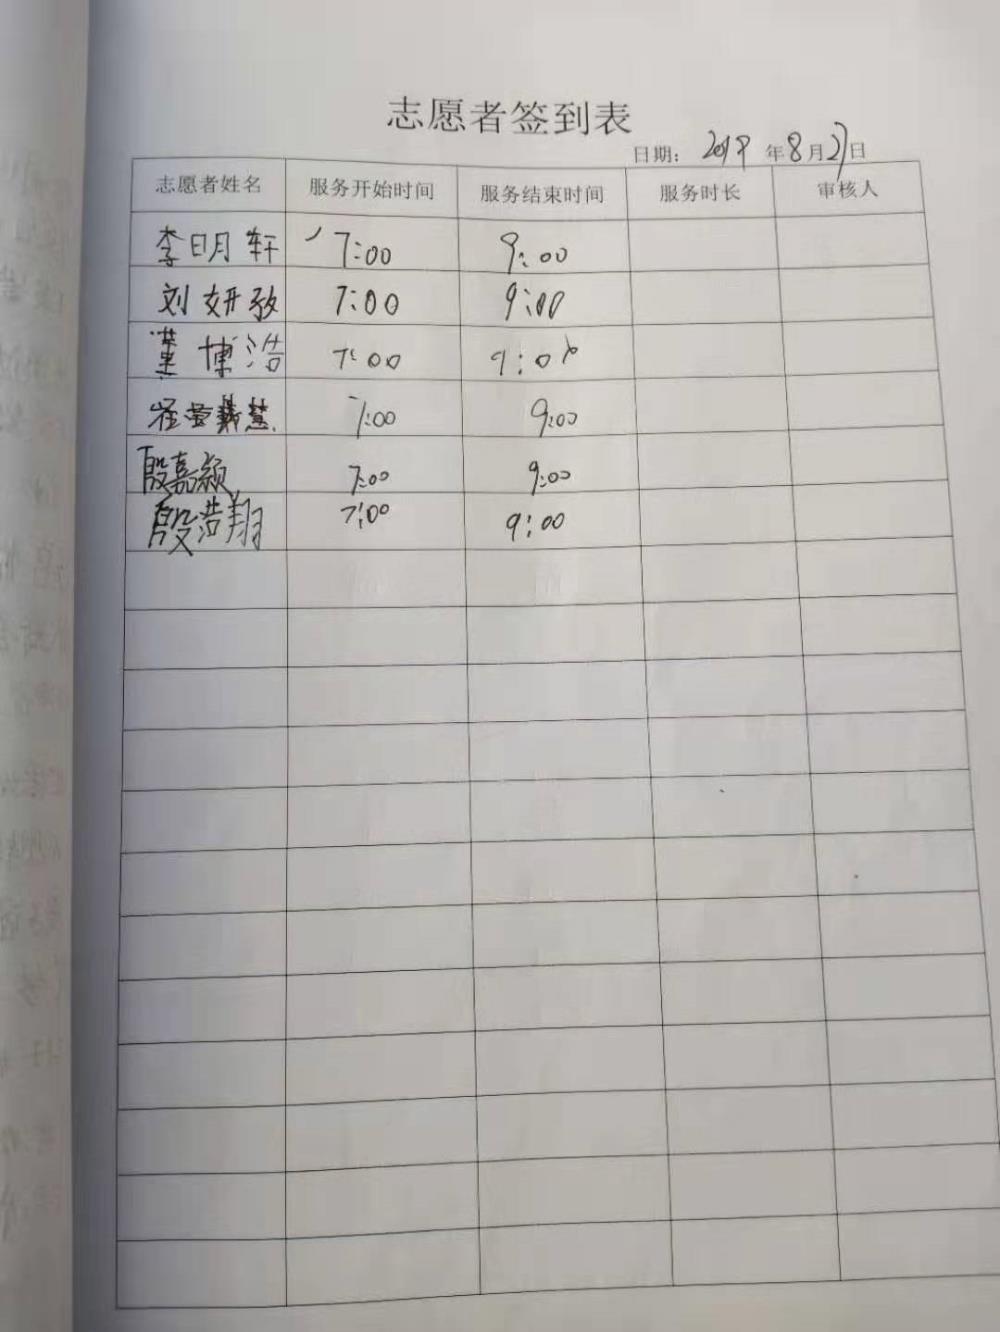 志愿者签到表
日期: 2019 年 8 月 27 日
志愿者姓名 服务开始时间 服务结束时间 服务时长 审核人
李明轩 7:00 9:00
刘妍孜 7:00 9:00
董博浩 7:00 9:00
7:00 9:00
殷嘉颖 7:00 9:00
殷浩翔 7:00 9:00